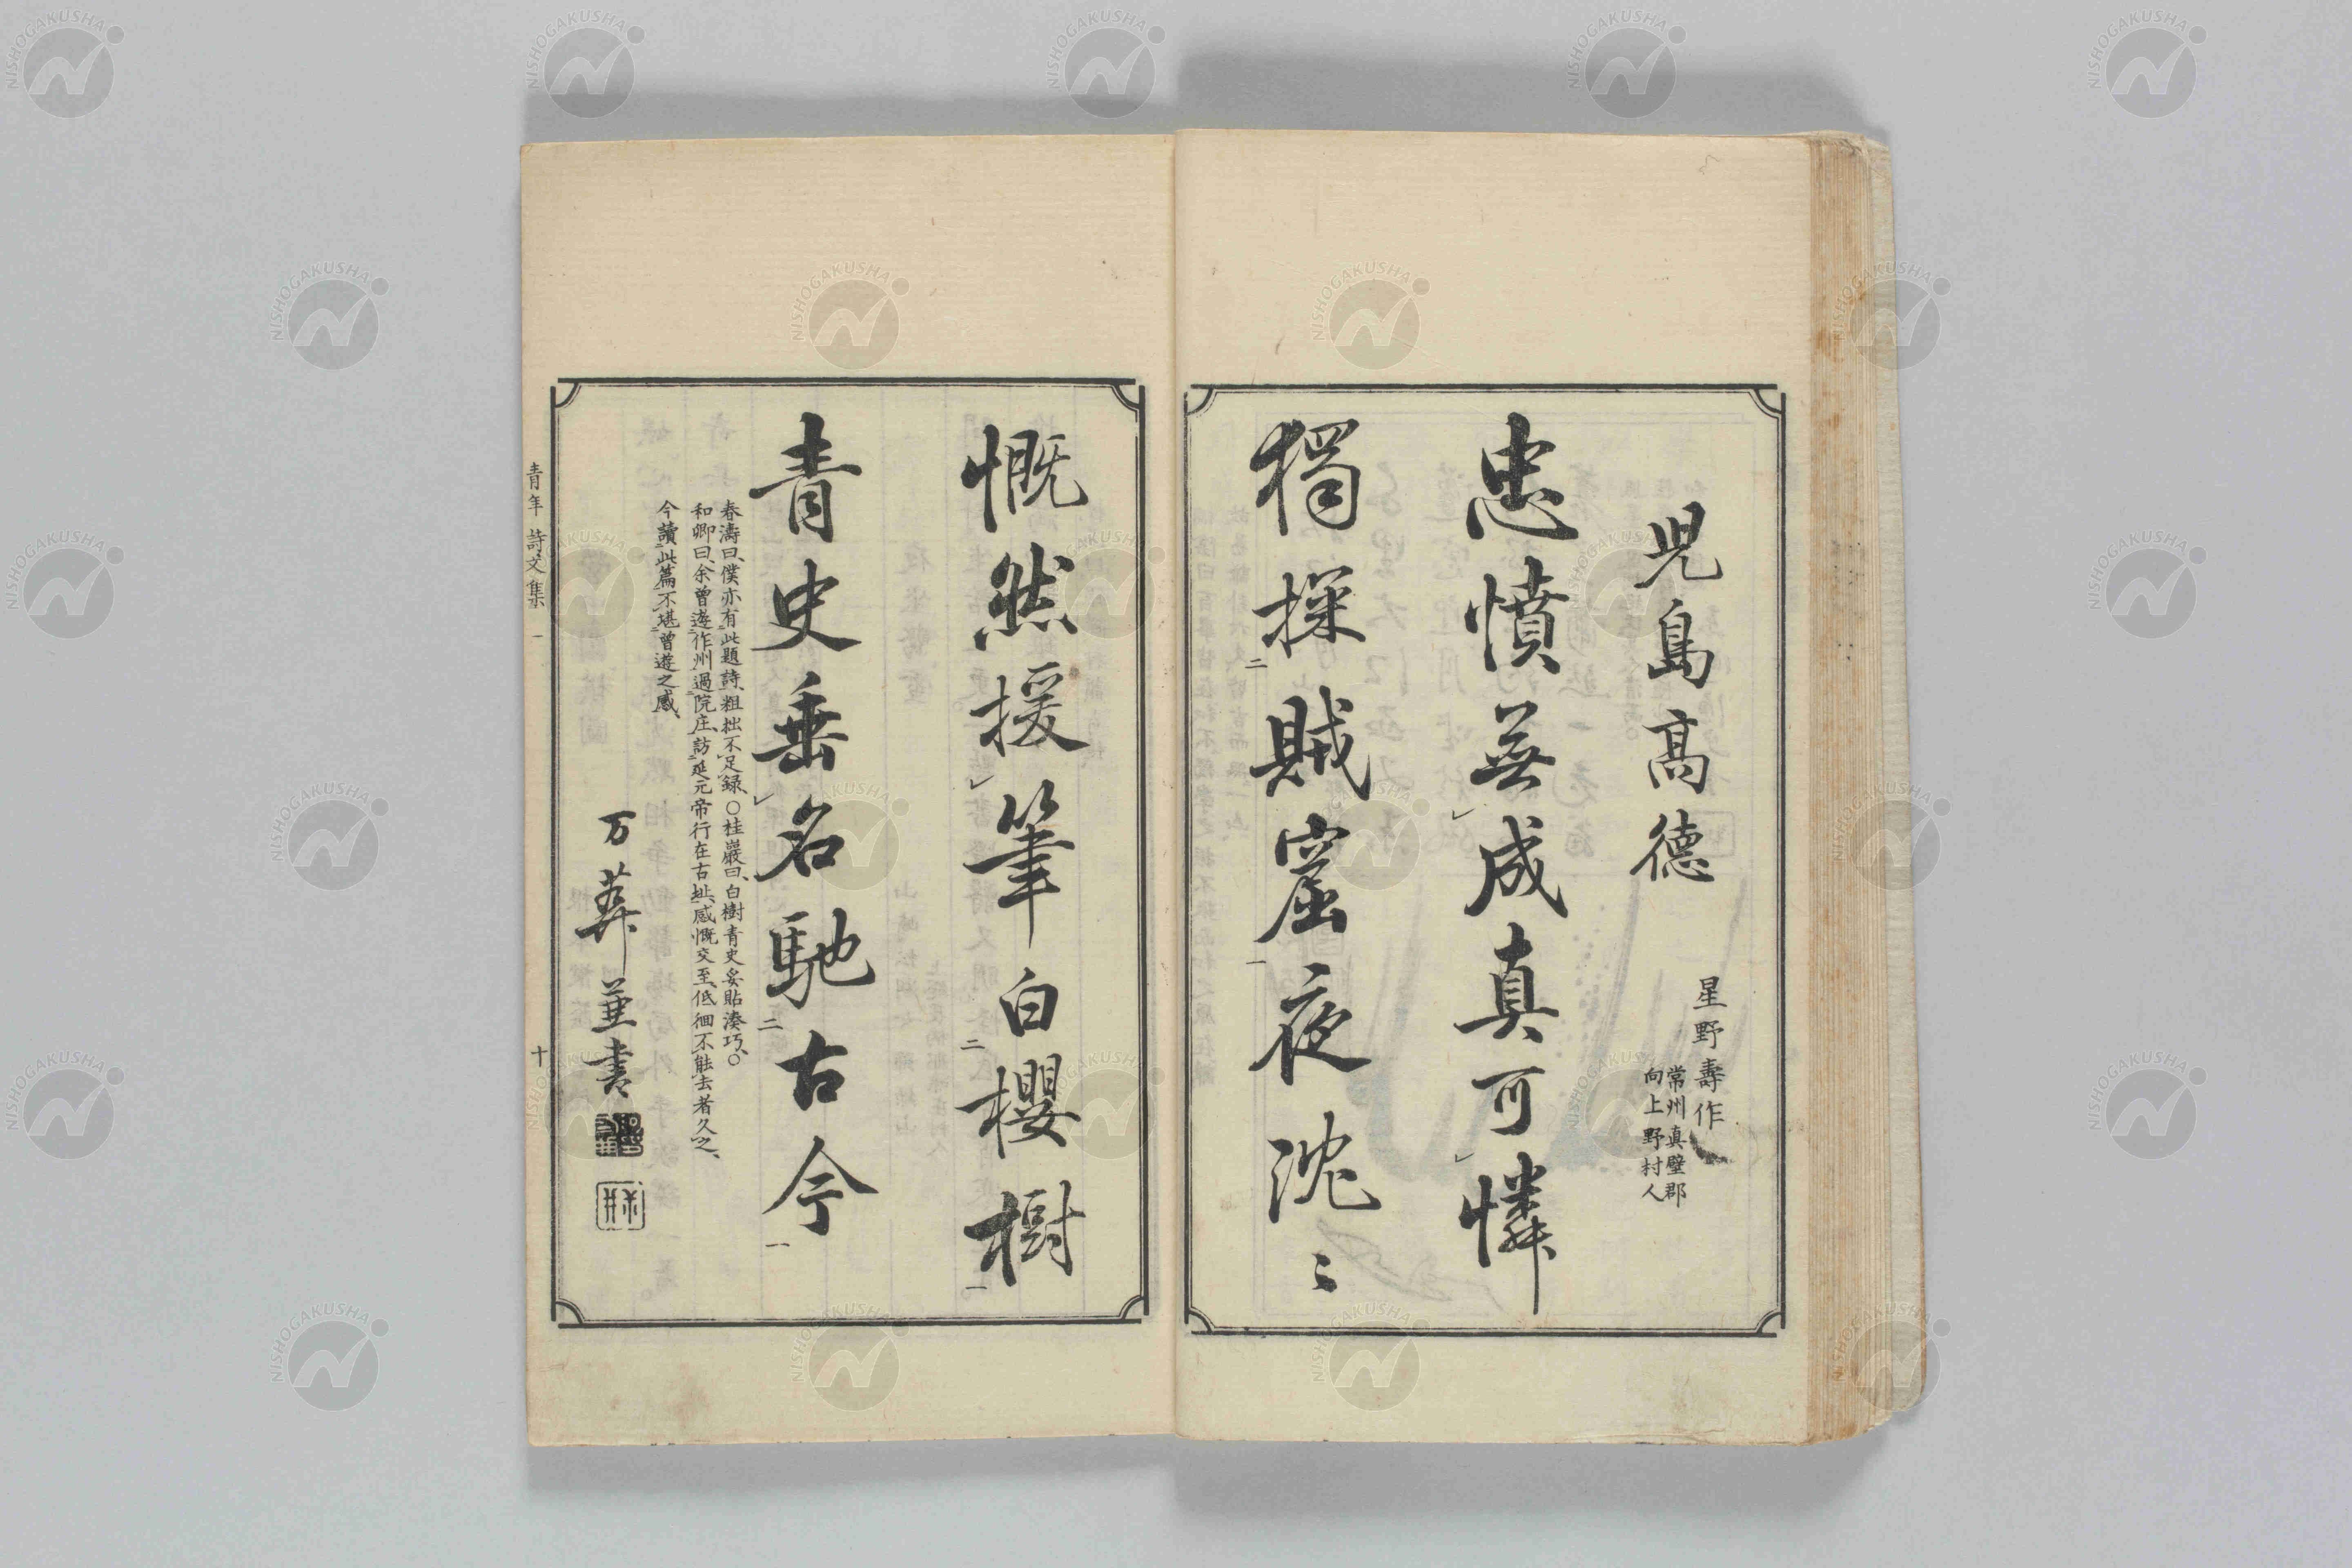 児島高德
星野壽作
常州真壁郡
向上野村人
忠憤無成真可憐
獨探賊窟夜沈〻
慨然援筆白櫻樹
青史垂名馳古今
春濤曰、僕亦有此題詩、粗拙不足録、〇桂巖曰、白樹青史妥貼湊巧、〇
和卿曰、余曾遊作州過院庄、訪延元帝行在古址、感慨交至、低徊不能去者久之、
今讀此篇不堪曾遊之感、
万葊
書
青年詩文集 一
十
NISHOGAKUSHA